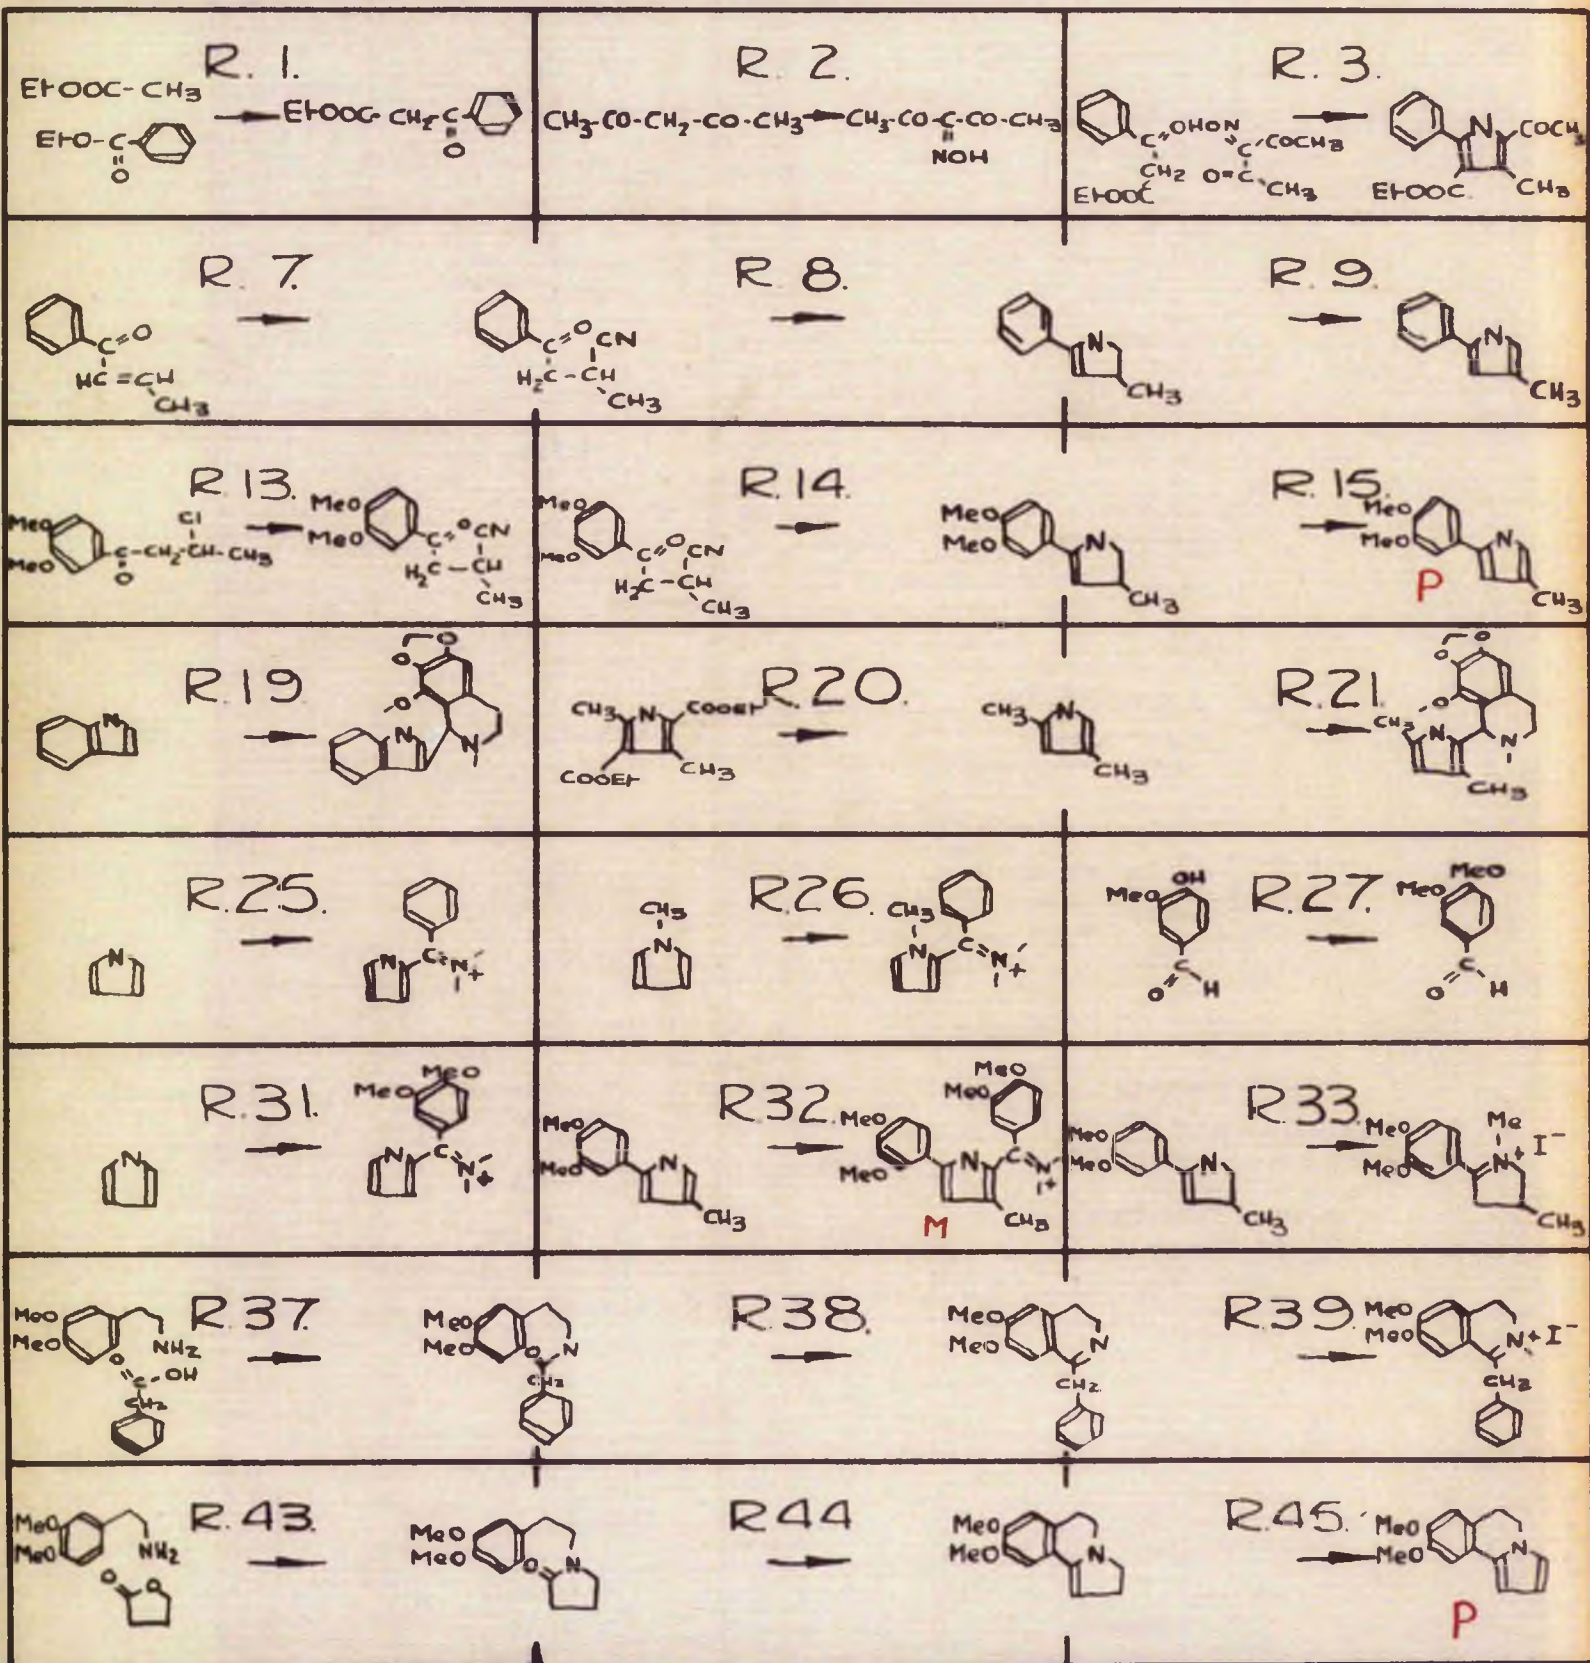 R. 1.
EtOOC-CH3
EtO-C
O
EtOOC-CH2-C
O
R. 2.
CH3-CO-CH2-CO-CH3
CH3-CO-C-CO-CH3
NOH
R. 3.
C=OHON
C-COCH3
CH2 O=C
EtOOC
CH3
N
COCH3
EtOOC
CH3
R. 7.
C=O
HC=CH
CH3
C=O CN
H2C-CH
CH3
R. 8.
N
CH3
R. 9.
N
CH3
R. 13.
MeO
MeO
Cl
C-CH2-CH-CH3
O
MeO
MeO
C=O CN
H2C-CH
CH3
R. 14.
MeO
MeO
C=O CN
H2C-CH
CH3
MeO
MeO
N
CH3
R. 15.
MeO
MeO
N
CH3
P
R. 19
N
O
O
O
N
N
R. 20.
CH3
N
COOEt
COOEt
CH3
CH3
N
CH3
R. 21.
O
O
O
CH3
N
N
CH3
R. 25.
N
N
C=N
+
R. 26.
CH3
N
CH3
N
C=N
+
R. 27.
OH
MeO
C
O
H
MeO
MeO
C
O
H
R. 31.
N
MeO
MeO
N
C=N
+
R. 32.
MeO
MeO
N
CH3
MeO
MeO
MeO
MeO
N
C=N
+
CH3
M
R. 33.
MeO
MeO
N
CH3
MeO
MeO
Me
N+
I-
CH3
R. 37.
MeO
MeO
NH2
O
C-OH
CH2
MeO
MeO
O
N
CH2
R. 38.
MeO
MeO
N
CH2
R. 39.
MeO
MeO
N+ I-
CH2
R. 43.
MeO
MeO
NH2
O
O
MeO
MeO
O
N
R. 44
MeO
MeO
N
R. 45.
MeO
MeO
N
P